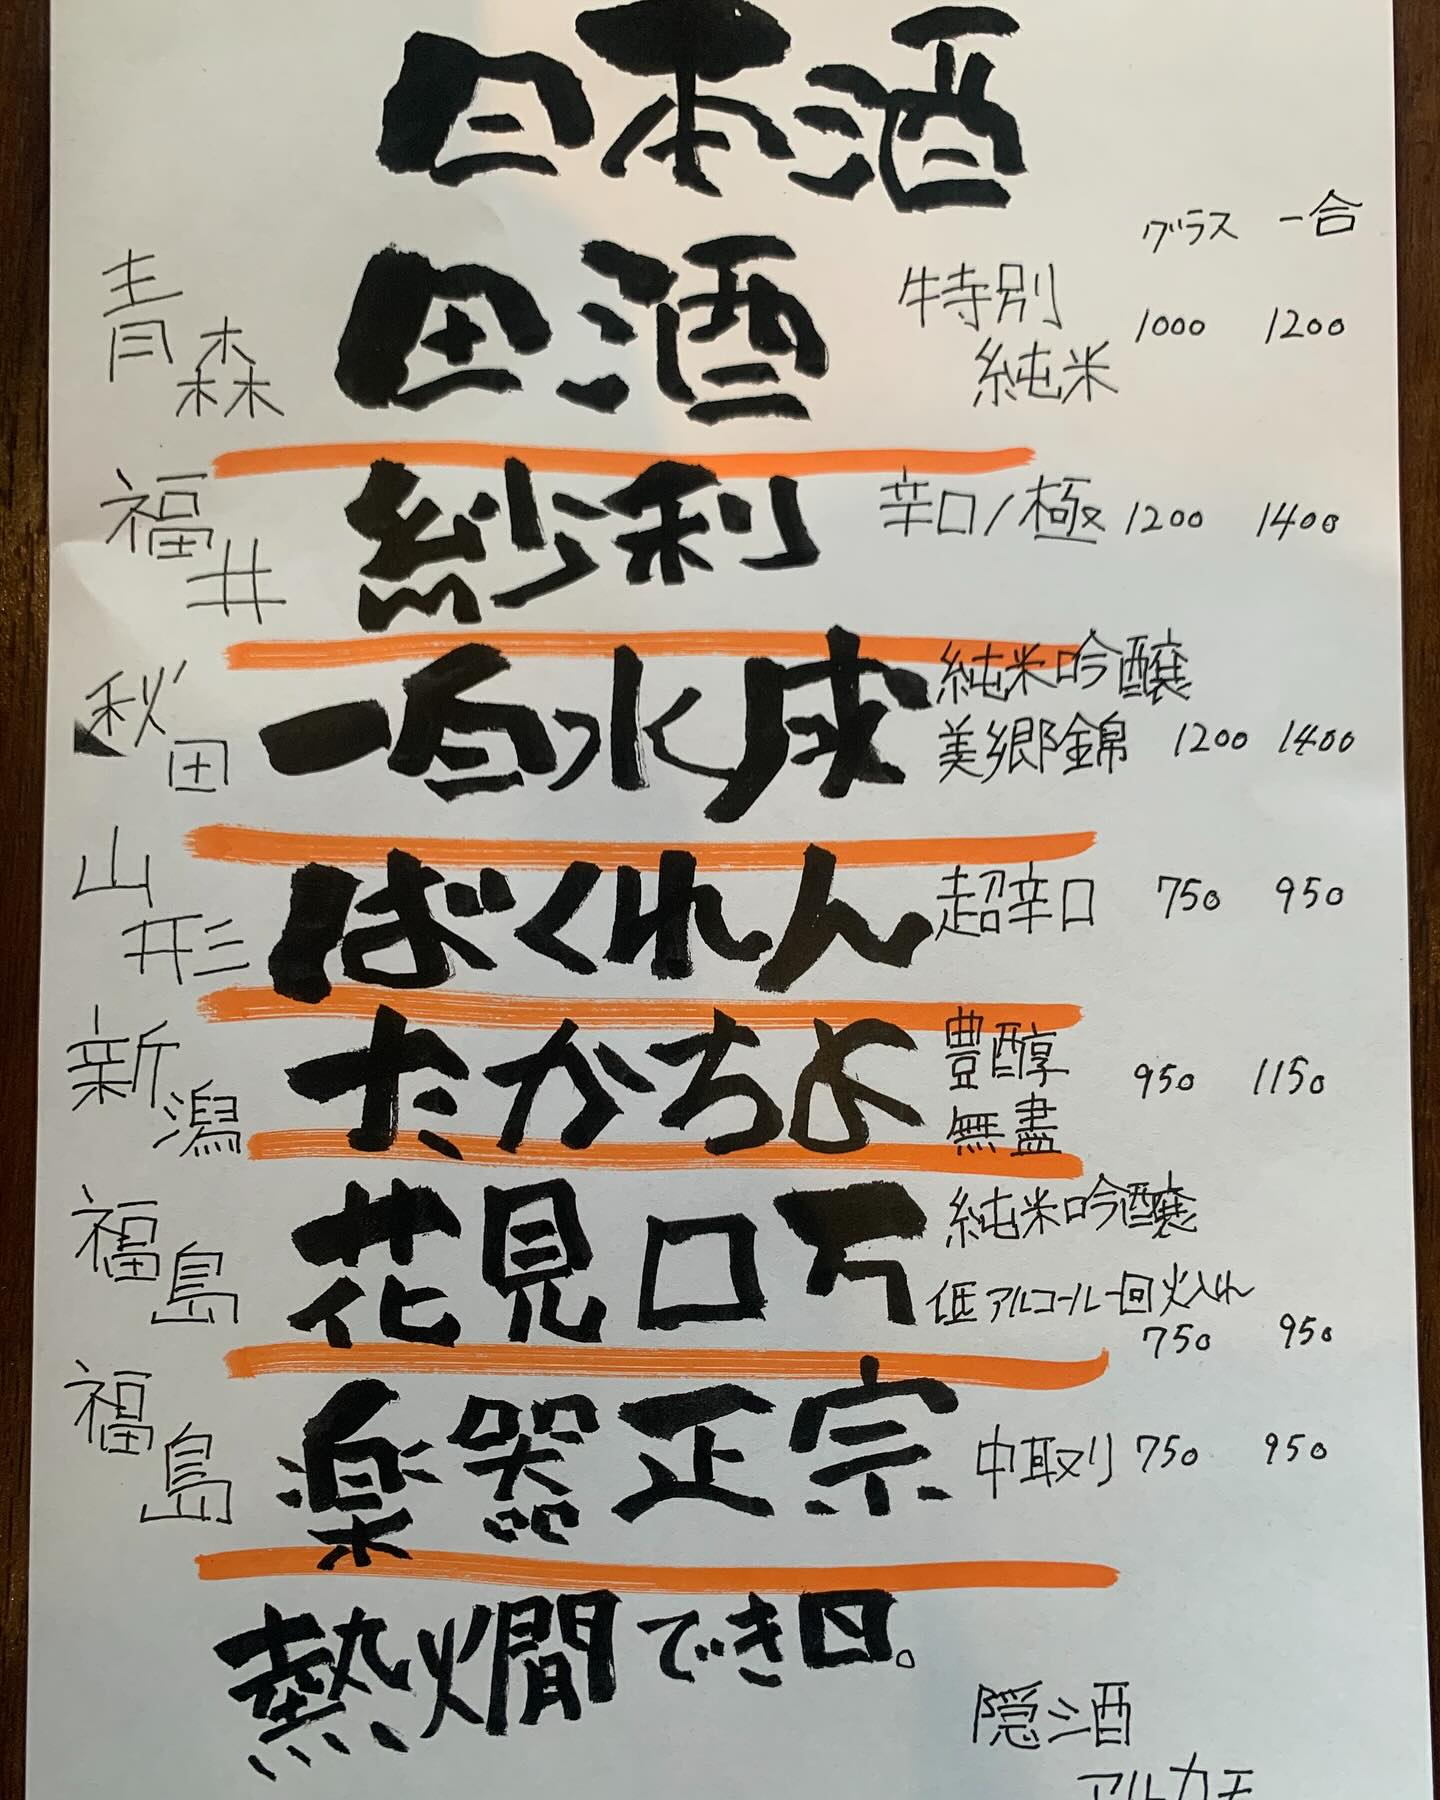 日本酒
グラス 一合
青森 田酒 特別純米 1000 1200
福井 紗利 辛口/極 1200 1400
秋田 一白水成 純米吟醸
美郷錦 1200 1400
山形 ばくれん 超辛口 750 950
新潟 たかちよ 豊醇無盡 950 1150
福島 花見ロ万 純米吟醸
低アルコール一回火入れ
750 950
福島 楽器正宗 中取り 750 950
熱燗でき日。
隠シ酒
アルカモ